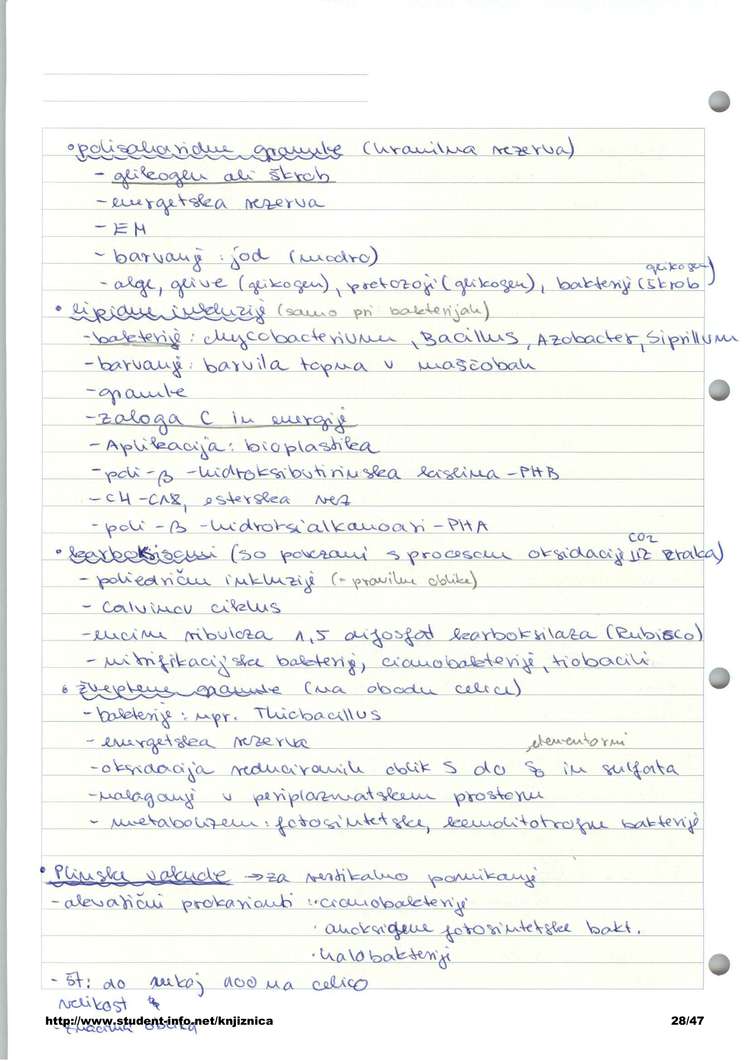 • polisaharidne granule (hranilna rezerva)
- glikogen ali škrob
- energetska rezerva
- EM
- barvanje : jod (modro)
- alge, glive (glikogen), protozoji (glikogen), bakterije (škrob glikogen)
• lipidne inkluzije (samo pri bakterijah)
- bakterije : Mycobacterium, Bacillus, Azobacter, Siprillum
- barvanje : barvila topna v maščobah
- granule
- zaloga C in energije
- Aplikacija : bioplastika
- poli-β-hidroksibutirinska kislina - PHB
- C4-C18, esterska vez
- poli-β-hidroksialkanoati - PHA
• karboksisomi (so povezani s procesom oksidacije CO2 iz zraka)
- poliedrične inkluzije (- pravilne oblike)
- Calvinov ciklus
- encim ribuloza 1,5 difosfat karboksilaza (Rubisco)
- nitrifikacijske bakterije, cianobakterije, tiobacili
• žveplene granule (na obodu celice)
- bakterije : npr. Thiobacillus
- energetska rezerva
- oksidacija reduciranih oblik S do elementarni S8 in sulfata
- nalaganje v periplazmatskem prostoru
- metabolizem : fotosintetske, kemolitotrofne bakterije
• Plinske vakuole → za vertikalno pomikanje
- akvatični prokarionti : · cianobakterije
· anoksigene fotosintetske bakt.
· halobakterije
- št: do nekaj 100 na celico
velikost
- značilna oblika
http://www.student-info.net/knjiznica 28/47